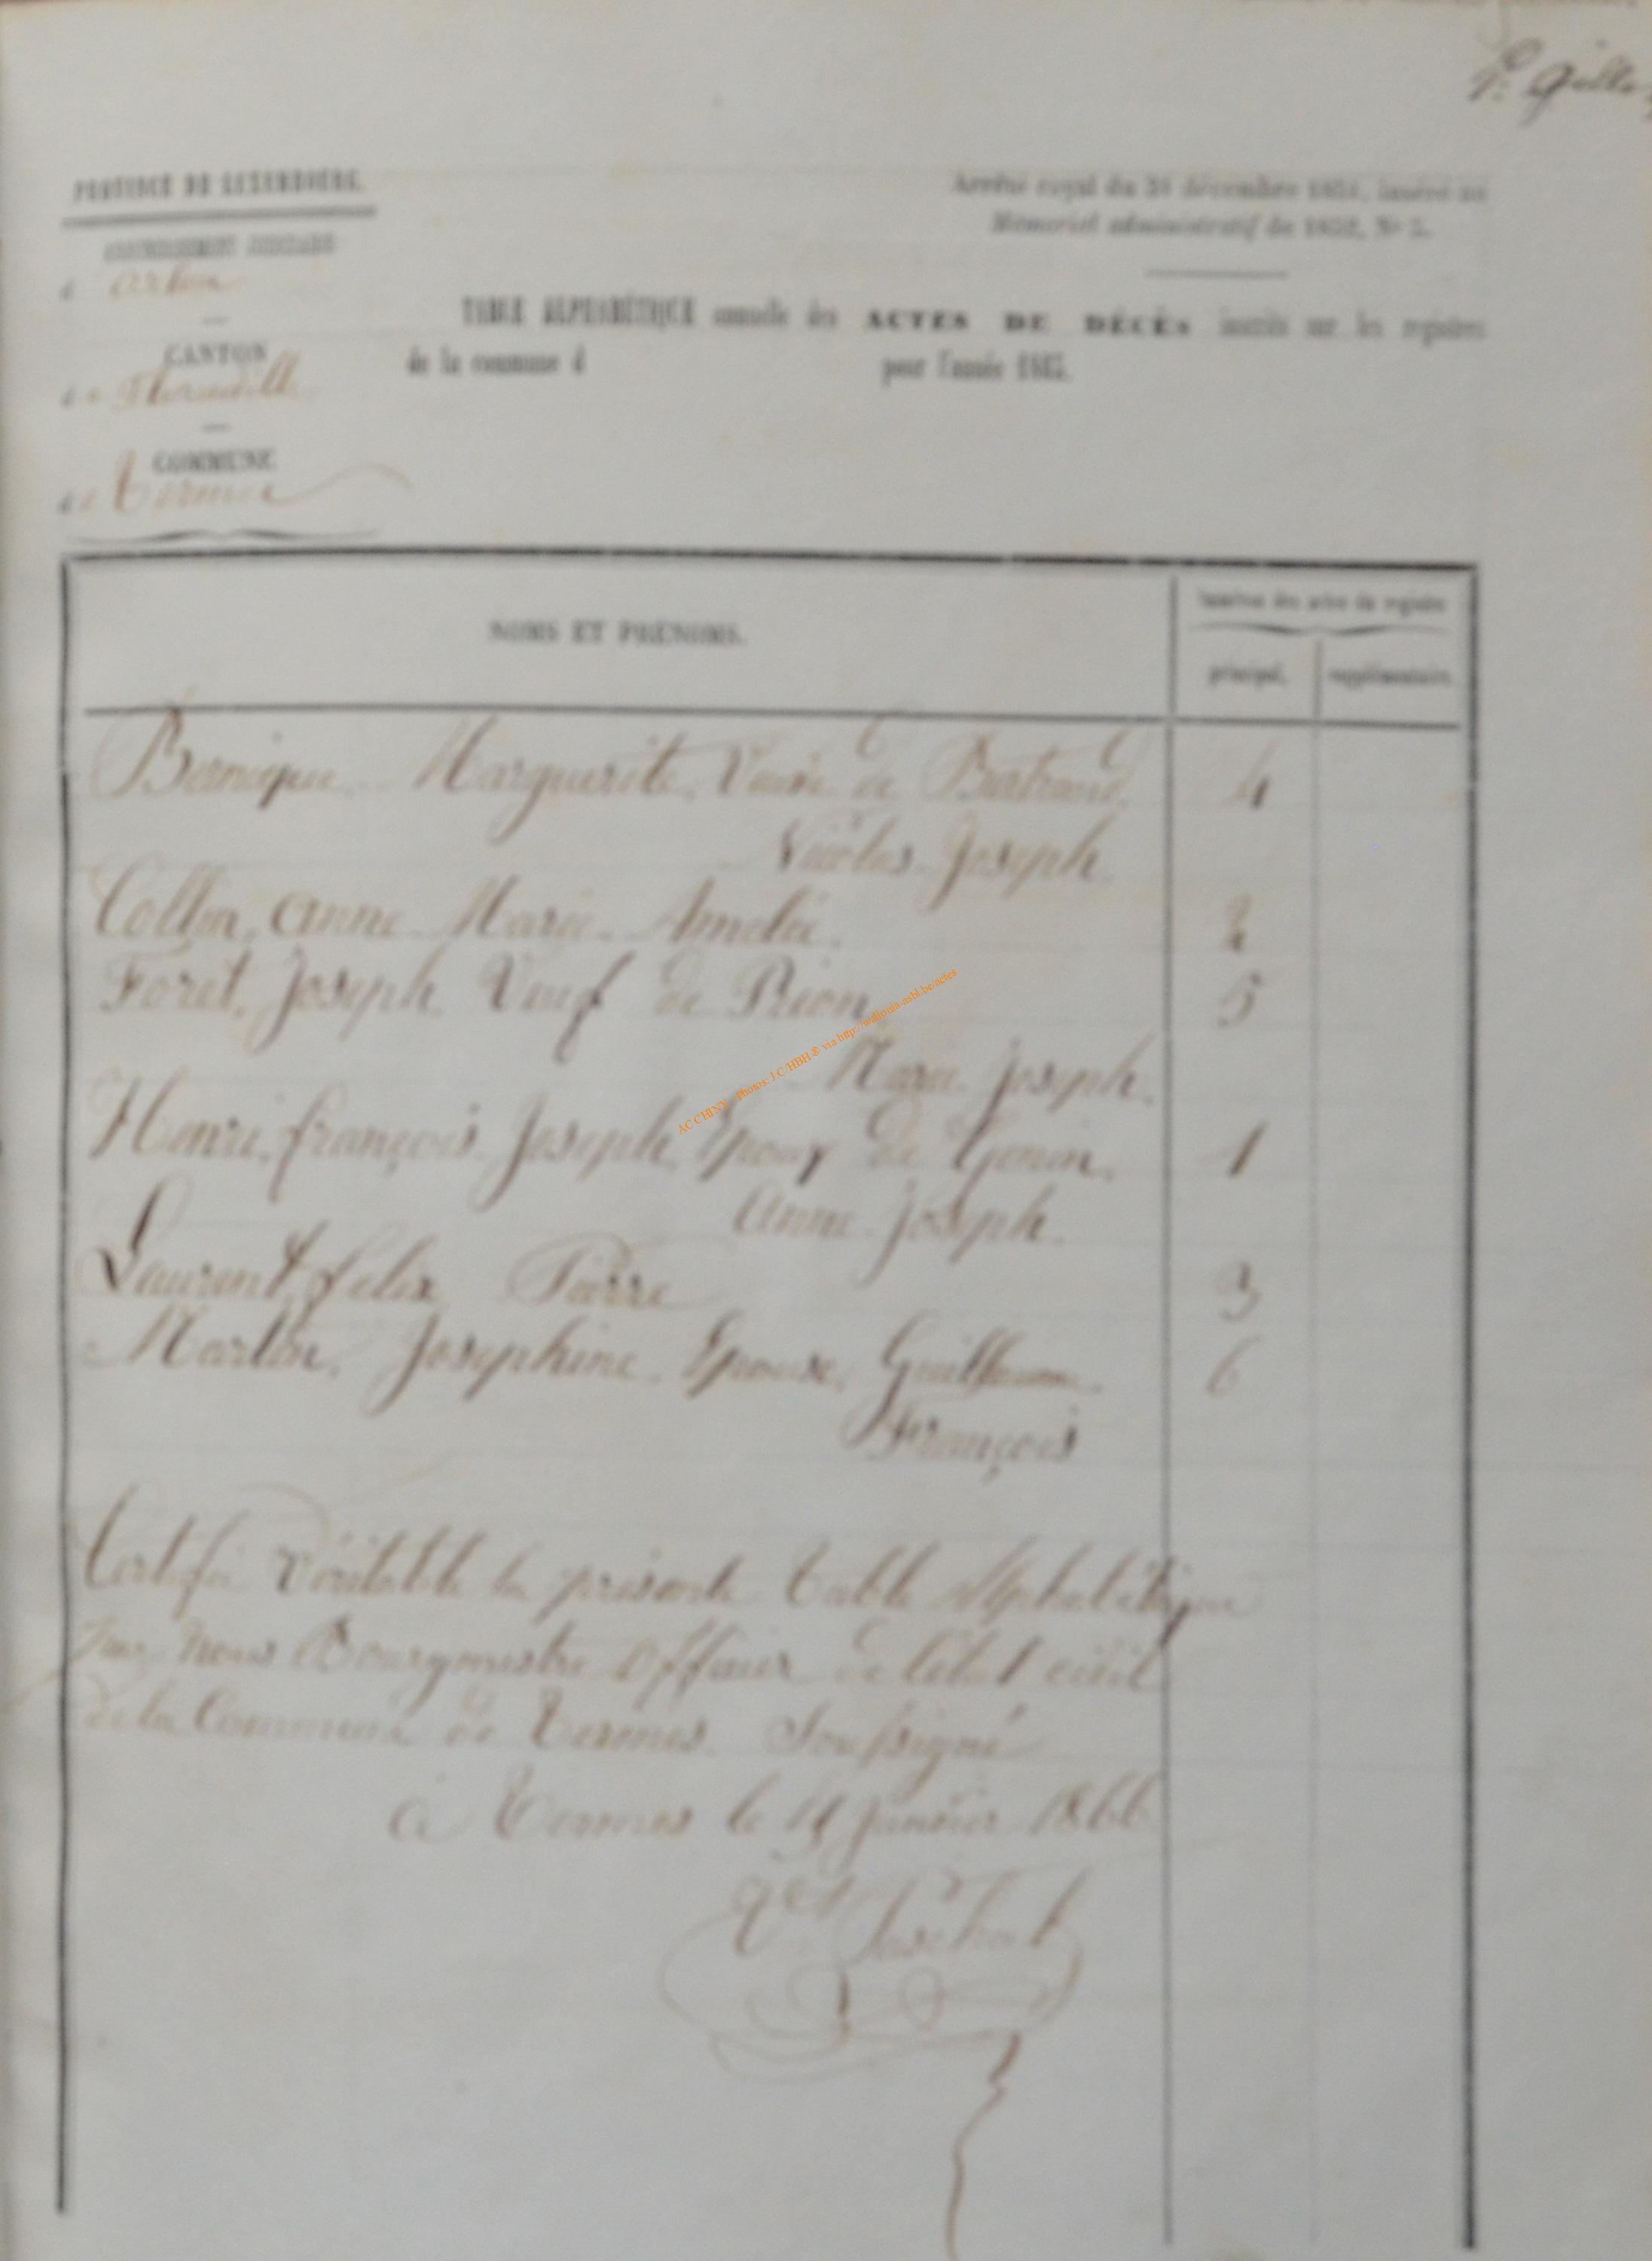 P. Gille
PROVINCE DE LUXEMBOURG.
Arrêté royal du 31 décembre 1851, inséré au
Mémorial administratif de 1852, No 5.
ARRONDISSEMENT JUDICIAIRE
d' Arlon
TABLE ALPHABÉTIQUE annuelle des ACTES DE DÉCÈS inscrits sur les registres
CANTON
de la commune d pour l'année 1865.
de Florenville
COMMUNE
de Termes
Numéros des actes du registre
NOMS ET PRÉNOMS.
principal. supplémentaire.
Bernique, Marguerite, Veuve de Bertrand, 4
Nicolas Joseph.
Collin, Anne Marie Amelie. 2
Foret, Joseph Veuf de Prion, 5
Marie Joseph.
Henri, françois Joseph, Epoux de Genin, 1
Anne Joseph.
Laurent, félix Pierre 3
Martin, Josephine, Epouse, Guillaume 6
François
AC CHINY - Photos: J.C/HBH ® via http://wallonia-asbl.be/actes
Certifié Véritable la présente table Alphabétique
par Nous Bourgmestre Officier de l'état civil
de la Commune de Termes Soussigné
à Termes le 11 janvier 1866
Paschal